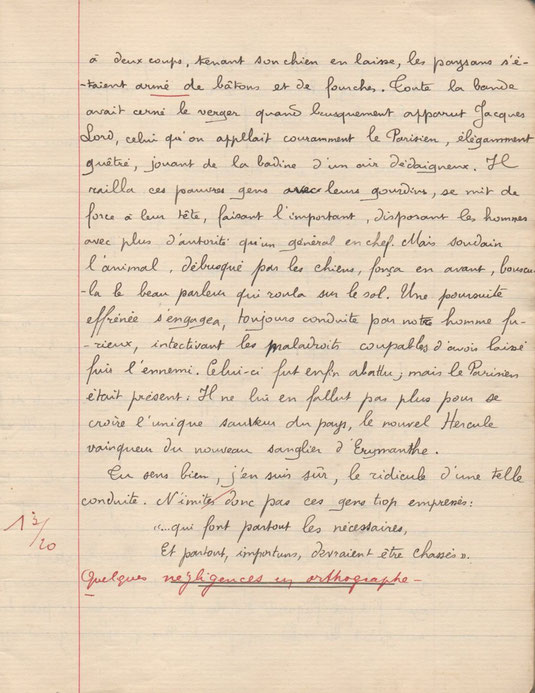 à deux coups, tenant son chien en laisse, les paysans s'é-
-taient armé de bâtons et de fourches. Toute la bande
avait cerné le verger quand brusquement apparut Jacques
Lord, celui qu'on appllait couramment le Parisien, élégamment
guêtré, jouant de la badine d'un air dédaigneux. Il
railla ces pauvres gens avec leurs gourdins, se mit de
force à leur tête, faisant l'important, disposant les hommes
avec plus d'autorité qu'un général en chef. Mais soudain
l'animal, débusqué par les chiens, fonça en avant, bouscu-
-la le beau parleur qui roula sur le sol. Une poursuite
effrénée s'engagea, toujours conduite par notre homme fu-
-rieux, intectivant les maladroits coupables d'avoir laissé
fuir l'ennemi. Celui-ci fut enfin abattu; mais le Parisien
était présent: Il ne lui en fallut pas plus pour se
croire l'unique sauveur du pays, le nouvel Hercule
vainqueur du nouveau sanglier d'Erymanthe.
Tu sens bien, j'en suis sûr, le ridicule d'une telle
conduite. N'imites donc pas ces gens trop empressés:
"...qui font partout les nécessaires,
Et partout, importuns, devraient être chassés".
/20
Quelques négligences en orthographe -